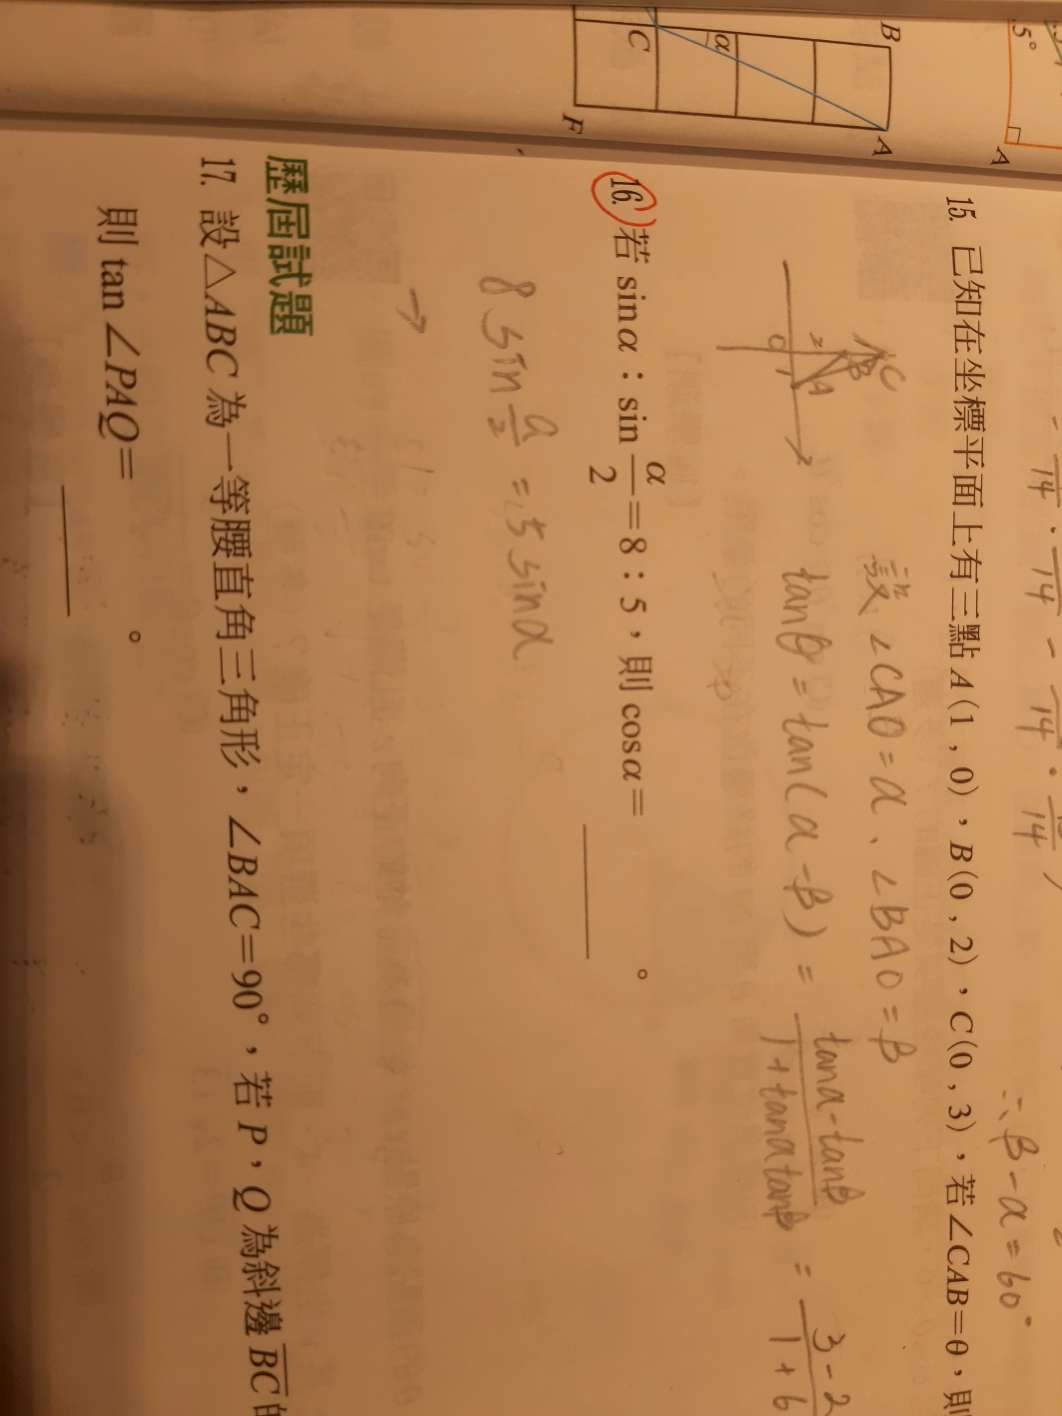 5°
A
B
α
C
A
F
∴ β - α = 60°
15. 已知在坐標平面上有三點 A(1 , 0)，B(0 , 2)，C(0 , 3)，若∠CAB=θ，則
設 ∠CAO = α、∠BAO = β
C
B
2
A
0
1
tanθ = tan(α - β) = \frac{tanα - tanβ}{1 + tanα tanβ} = \frac{3 - 2}{1 + 6}
16. 若 sinα：sin\frac{α}{2}=8：5，則 cosα=______。
8 sin\frac{α}{2} = 5 sinα
→
歷屆試題
17. 設△ABC 為一等腰直角三角形，∠BAC=90°，若 P，Q 為斜邊 \overline{BC}
則 tan∠PAQ=______。